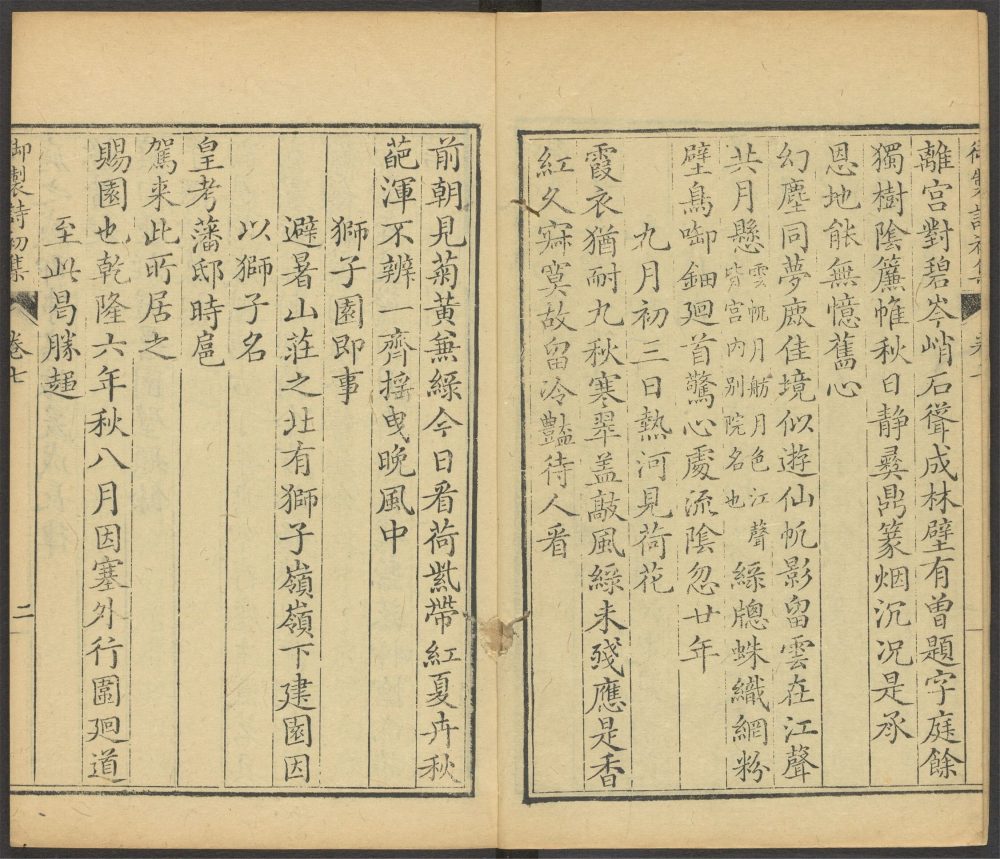 離宮對碧岑峭石聳成林壁有曾題字庭餘
獨樹陰簾帷秋日静彛鼎篆烟沉况是承
恩地能無憶舊心
幻塵同夢鹿佳境似遊仙帆影留雲在江聲
共月懸雲帆月舫月色江聲皆宫内别院名也緑牎蛛織網粉
壁鳥啣鈿廻首驚心處流陰忽廿年
九月初三日熱河見荷花
霞衣猶耐九秋寒翠盖敲風緑未殘應是香
紅久寂寞故留冷艶待人看
前朝見菊黄兼緑今日看荷紫帶紅夏卉秋
葩渾不辨一齊摇曳晚風中
獅子園即事
避暑山莊之北有獅子嶺嶺下建園因
以獅子名
皇考藩邸時扈
駕来此所居之
賜園也乾隆六年秋八月因塞外行圍廻道
至此曷勝
御製詩初集
卷七
二